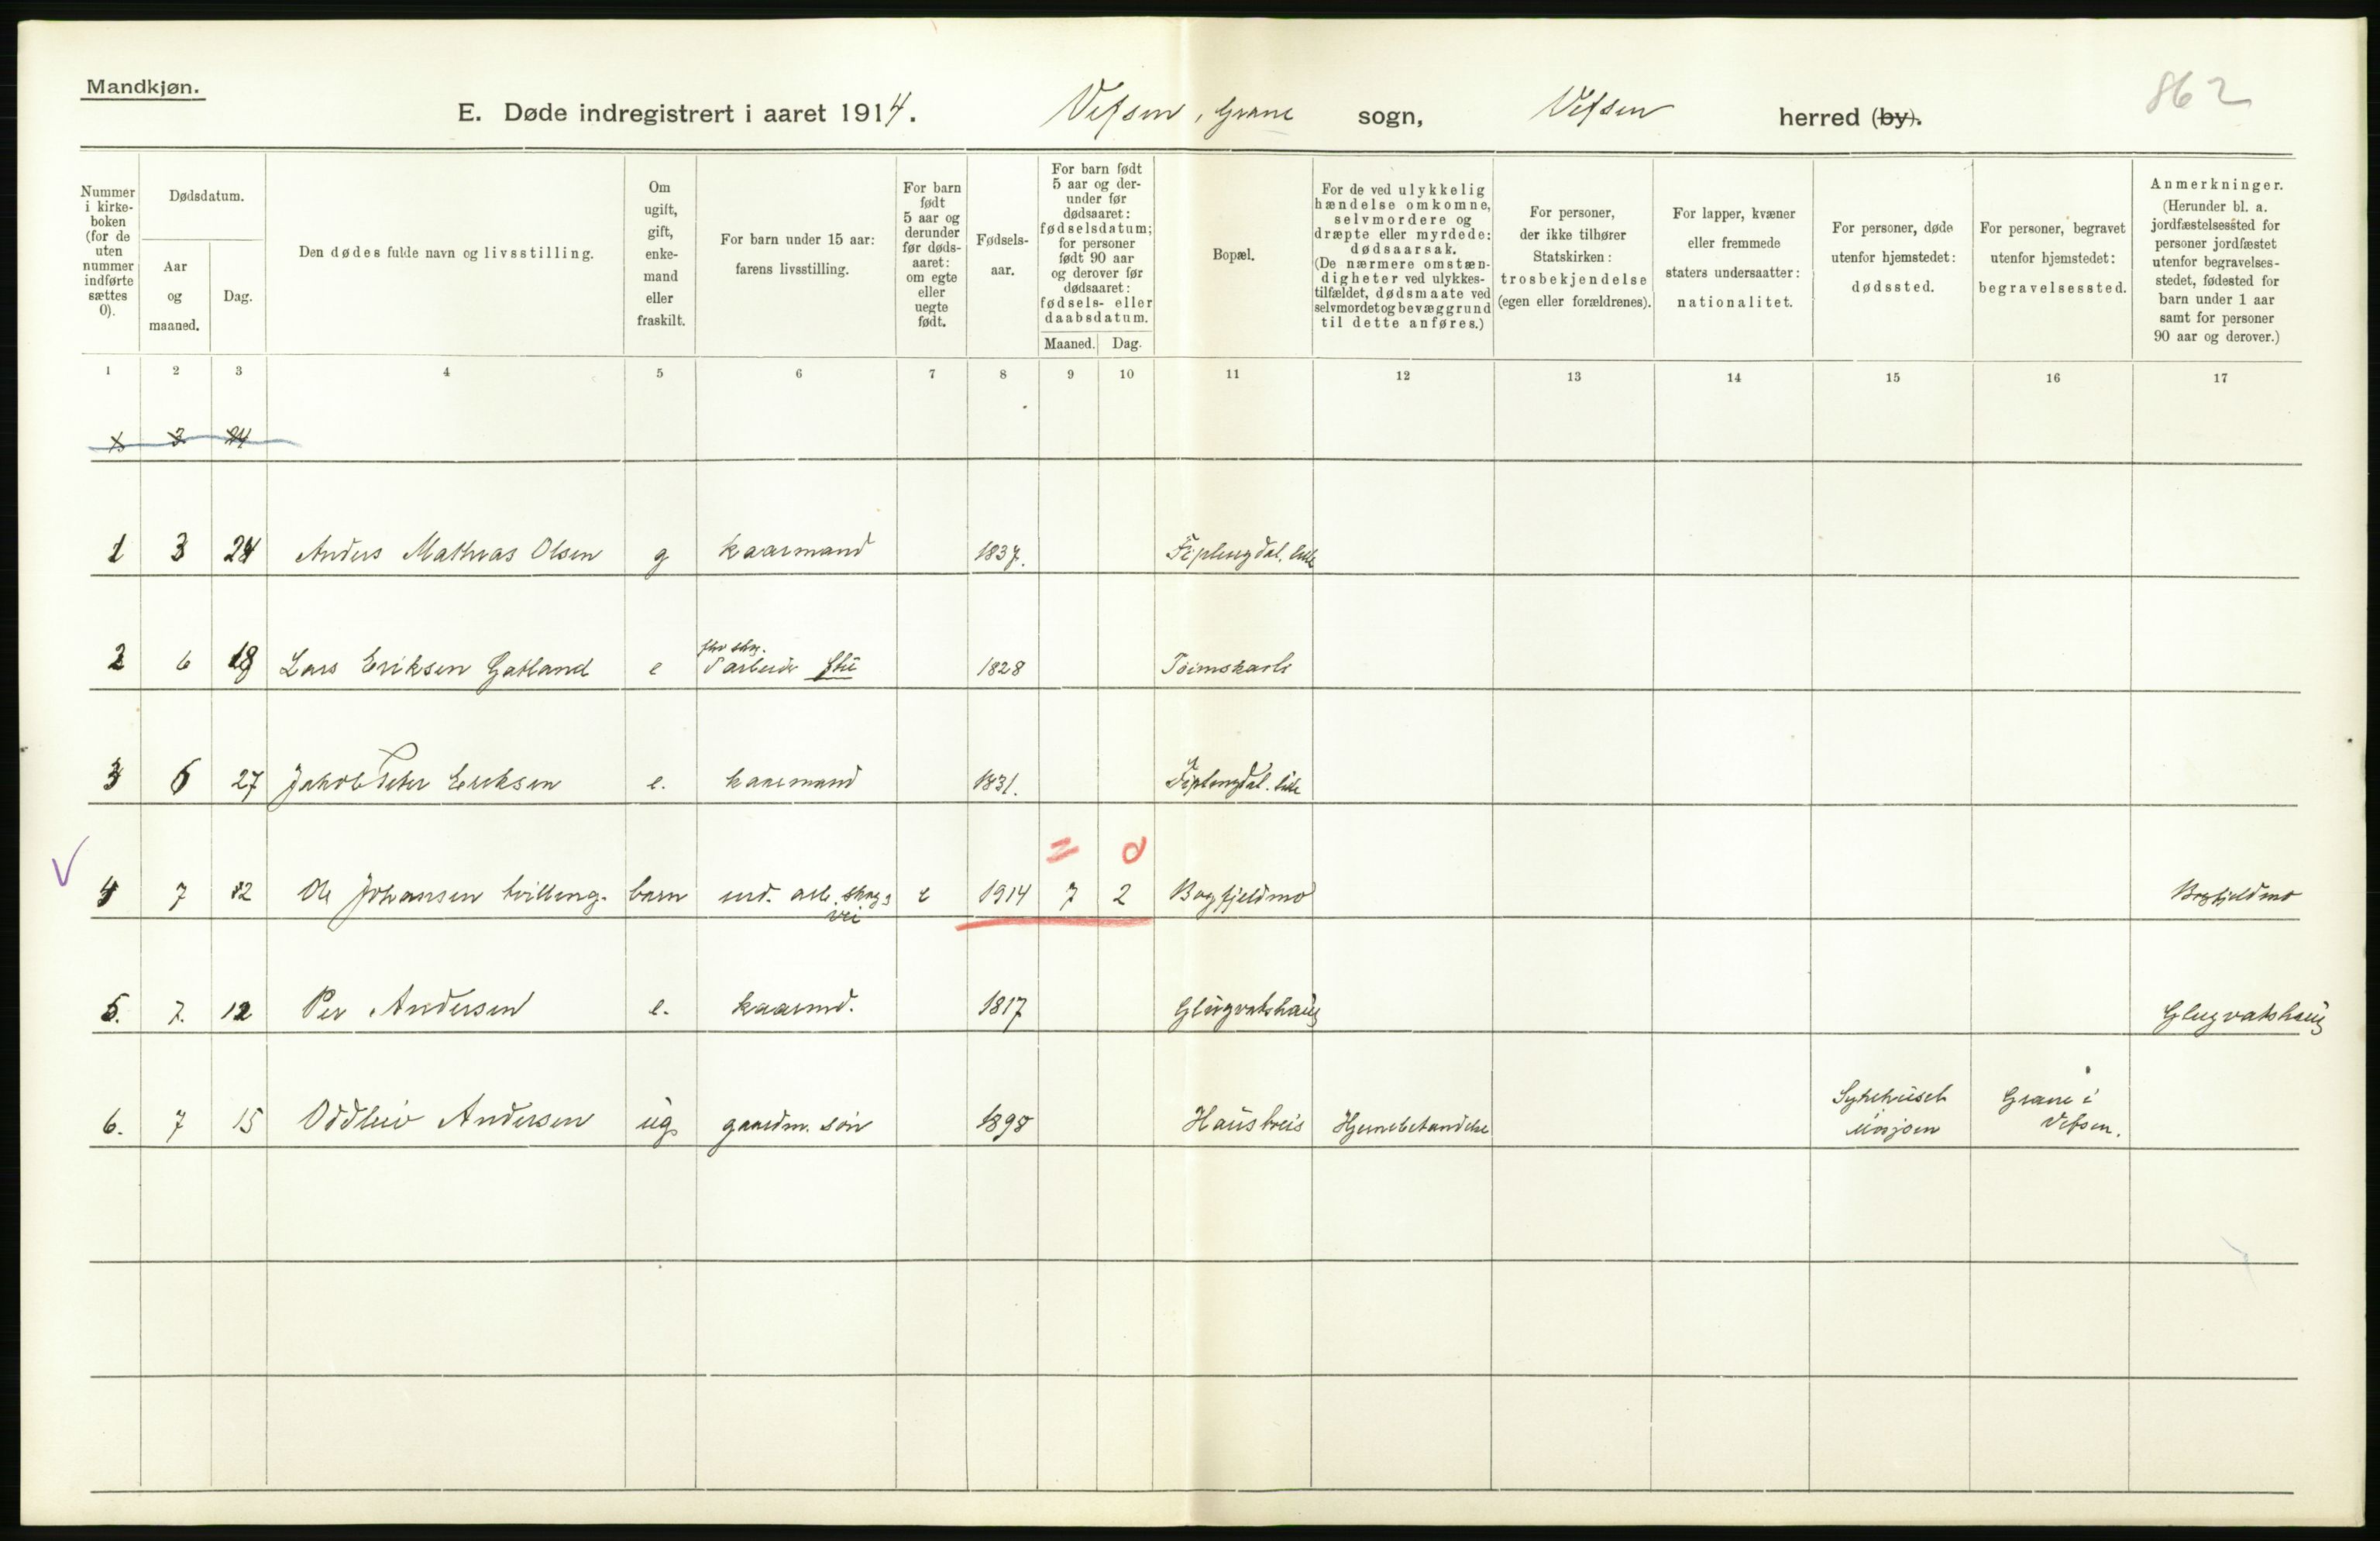 Mandkjøn.
E. Døde indregistrert i aaret 1914. Vefsen, Grane sogn, Vefsen herred (by).
862
Nummer i kirkeboken (for de uten nummer indførte sættes 0).
Dødsdatum.
Aar og maaned.
Dag.
Den dødes fulde navn og livsstilling.
Om ugift, gift, enkemand eller fraskilt.
For barn under 15 aar: farens livsstilling.
For barn født 5 aar og derunder før dødsaaret: om egte eller uegte født.
Fødselsaar.
For barn født 5 aar og derunder før dødsaaret: fødselsdatum; for personer født 90 aar og derover før dødsaaret: fødsels- eller daabsdatum.
Maaned. Dag.
Bopæl.
For de ved ulykkelig hændelse omkomne, selvmordere og dræpte eller myrdede: dødsaarsak. (De nærmere omstændigheter ved ulykkestilfældet, dødsmaate ved selvmordet og bevæggrund til dette anføres.)
For personer, der ikke tilhører Statskirken: trosbekjendelse (egen eller forældrenes).
For lapper, kvæner eller fremmede staters undersaatter: nationalitet.
For personer, døde utenfor hjemstedet: dødssted.
For personer, begravet utenfor hjemstedet: begravelsessted.
Anmerkninger. (Herunder bl. a. jordfæstelsessted for personer jordfæstet utenfor begravelsesstedet, fødested for barn under 1 aar samt for personer 90 aar og derover.)
1 2 3 4 5 6 7 8 9 10 11 12 13 14 15 16 17
1 3 24
1 3 24 Anders Mathias Olsen g kaarmand 1837. Fiplingdal. lille
2 6 18 Lars Eriksen Gatland e arbeider 1828 Toimskarli
3 6 27 Jakob Peter Eriksen e. kaarmand 1831. Fiplingdal. lille
= 0
4 7 12 Ole Johansen tvilling. barn ind. arb. skog & vei e 1914 7 2 Bogfjeldmo Bogfjeldmo
5. 7. 12 Per Andersen e. kaarmd. 1817 Glugvatshaug Glugvatshaug
6. 7 15 Oddleiv Andersen ug gaardm. søn 1898 Hausbreis Hjernebetændelse Sykehuset Mosjøen Grane i Vefsen.